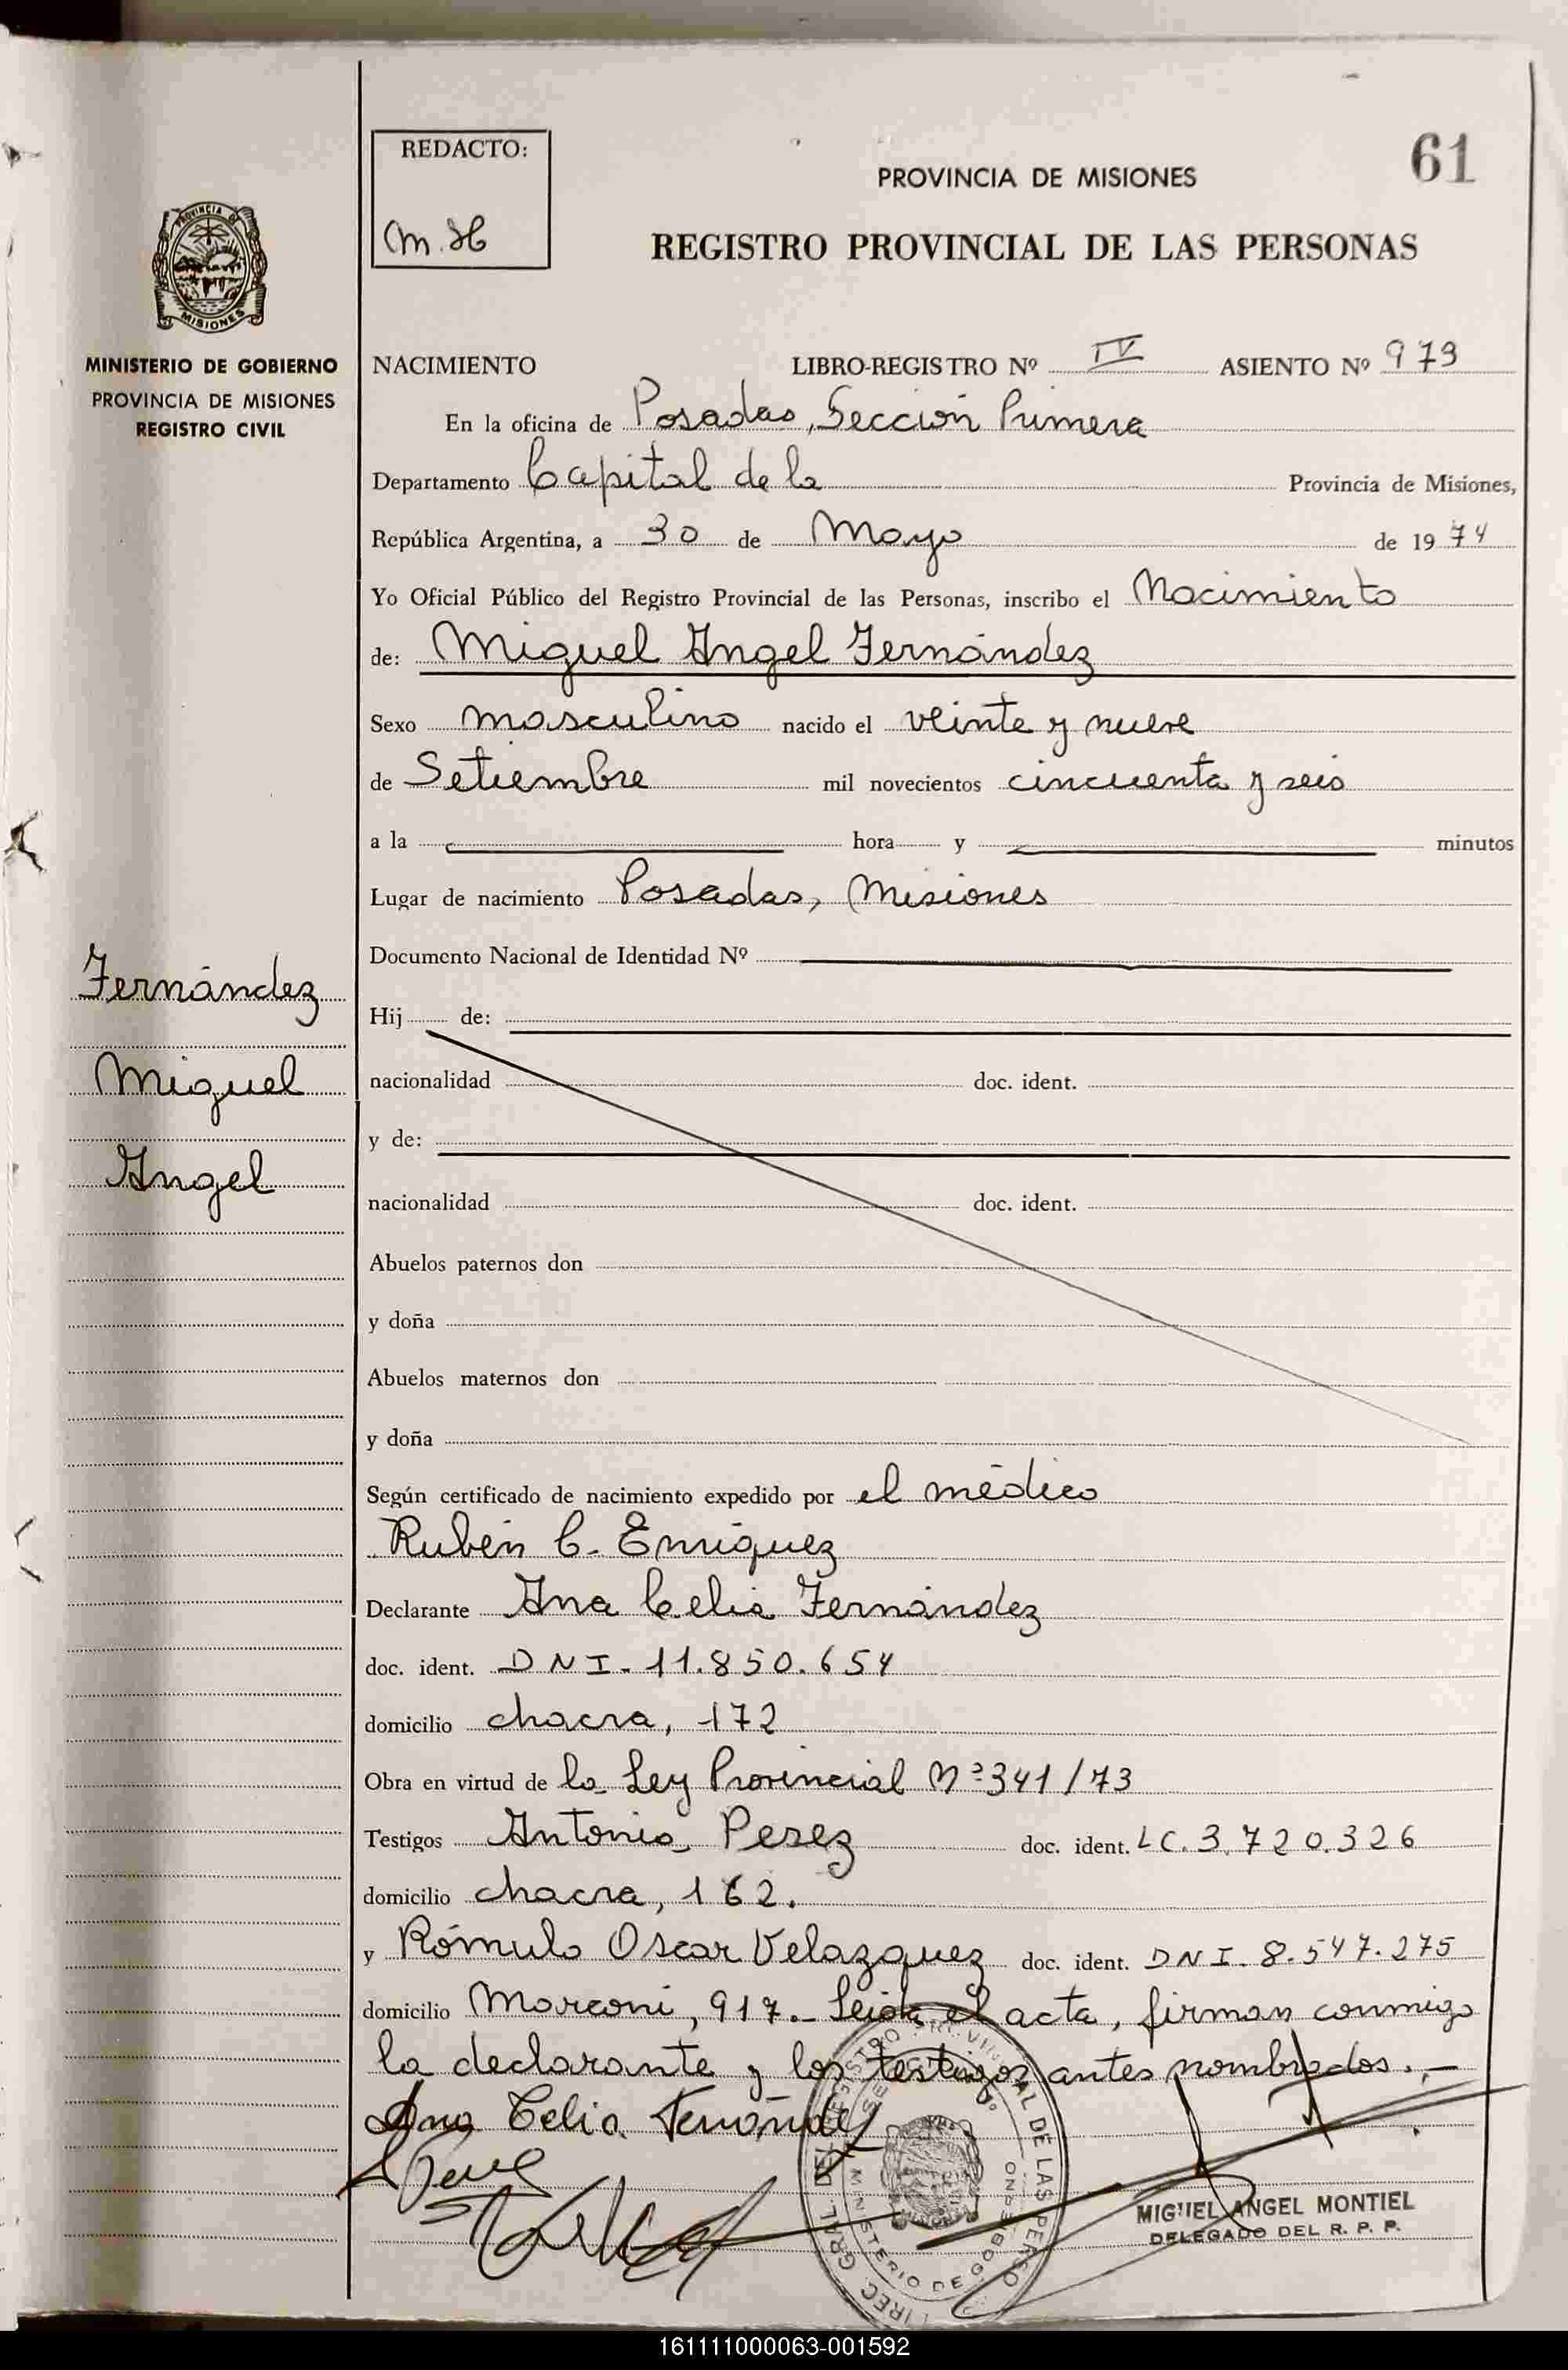 61
REDACTO:
M.H
PROVINCIA DE MISIONES
REGISTRO PROVINCIAL DE LAS PERSONAS
PROVINCIA DE
MISIONES
MINISTERIO DE GOBIERNO
PROVINCIA DE MISIONES
REGISTRO CIVIL
NACIMIENTO LIBRO-REGISTRO Nº IV ASIENTO Nº 979
En la oficina de Posadas, Sección Primera
Departamento Capital de la Provincia de Misiones,
República Argentina, a 30 de Mayo de 1974
Yo Oficial Público del Registro Provincial de las Personas, inscribo el Nacimiento
de: Miguel Angel Fernández
Sexo masculino nacido el veinte y nueve
de Setiembre mil novecientos cincuenta y seis
a la hora y minutos
Lugar de nacimiento Posadas, Misiones
Documento Nacional de Identidad Nº
Fernández
Miguel
Angel
Hij de:
nacionalidad doc. ident.
y de:
nacionalidad doc. ident.
Abuelos paternos don
y doña
Abuelos maternos don
y doña
Según certificado de nacimiento expedido por el médico
Rubén C. Enriquez
Declarante Ana Celia Fernández
doc. ident. DNI. 11.850.654
domicilio chacra, 172
Obra en virtud de la Ley Provincial Nº 341/73
Testigos Antonia Perez doc. ident. LC. 3.720.326
domicilio chacra, 162.
y Rómulo Oscar Velazquez doc. ident. DNI. 8.547.275
domicilio Marconi, 917.- Leida el acta, firman conmigo
la declarante y los testigos antes nombrados.-
Ana Celia Fernández
MIGUEL ANGEL MONTIEL
DELEGADO DEL R. P. P.
161111000063-001592